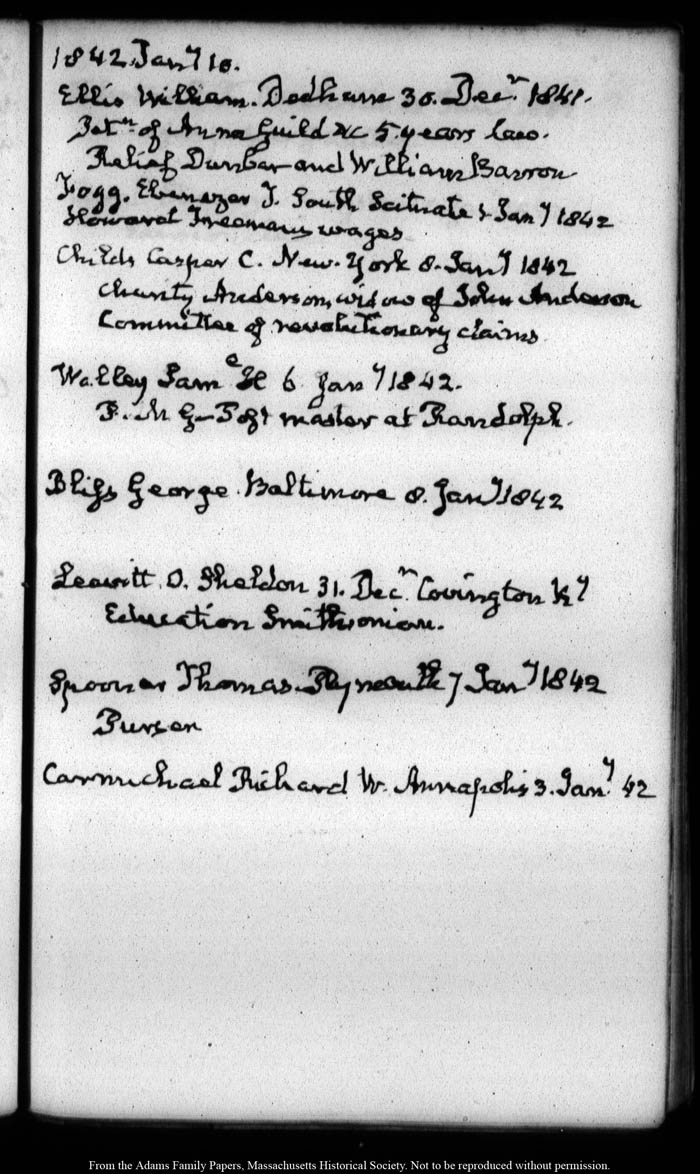 1842. Jany 10.
Ellis William. Dedham 30. Decr. 1841.
Petn. of Anna Guild &c 5. years law.
Relief Dunbar and William Barron
Fogg. Ebenezer T. South Scituate Jany 1842
Howard Freeman's wages
Childs Casper C. New-York 8. Jany 1842
Charity Anderson, widow of John Anderson
Committee of revolutionary claims
Walley Saml. H 6 Jany 1842.
P. M G— Post master at Randolph.
Bliss George. Baltimore 8. Jany 1842
Leavitt. O. Sheldon 31. Decr. Covington Ky
Education Smithsonian.
Spooner Thomas. Plymouth 7 Jany 1842
Purser
Carmichael Richard W. Annapolis 3. Jany. 42
From the Adams Family Papers, Massachusetts Historical Society. Not to be reproduced without permission.